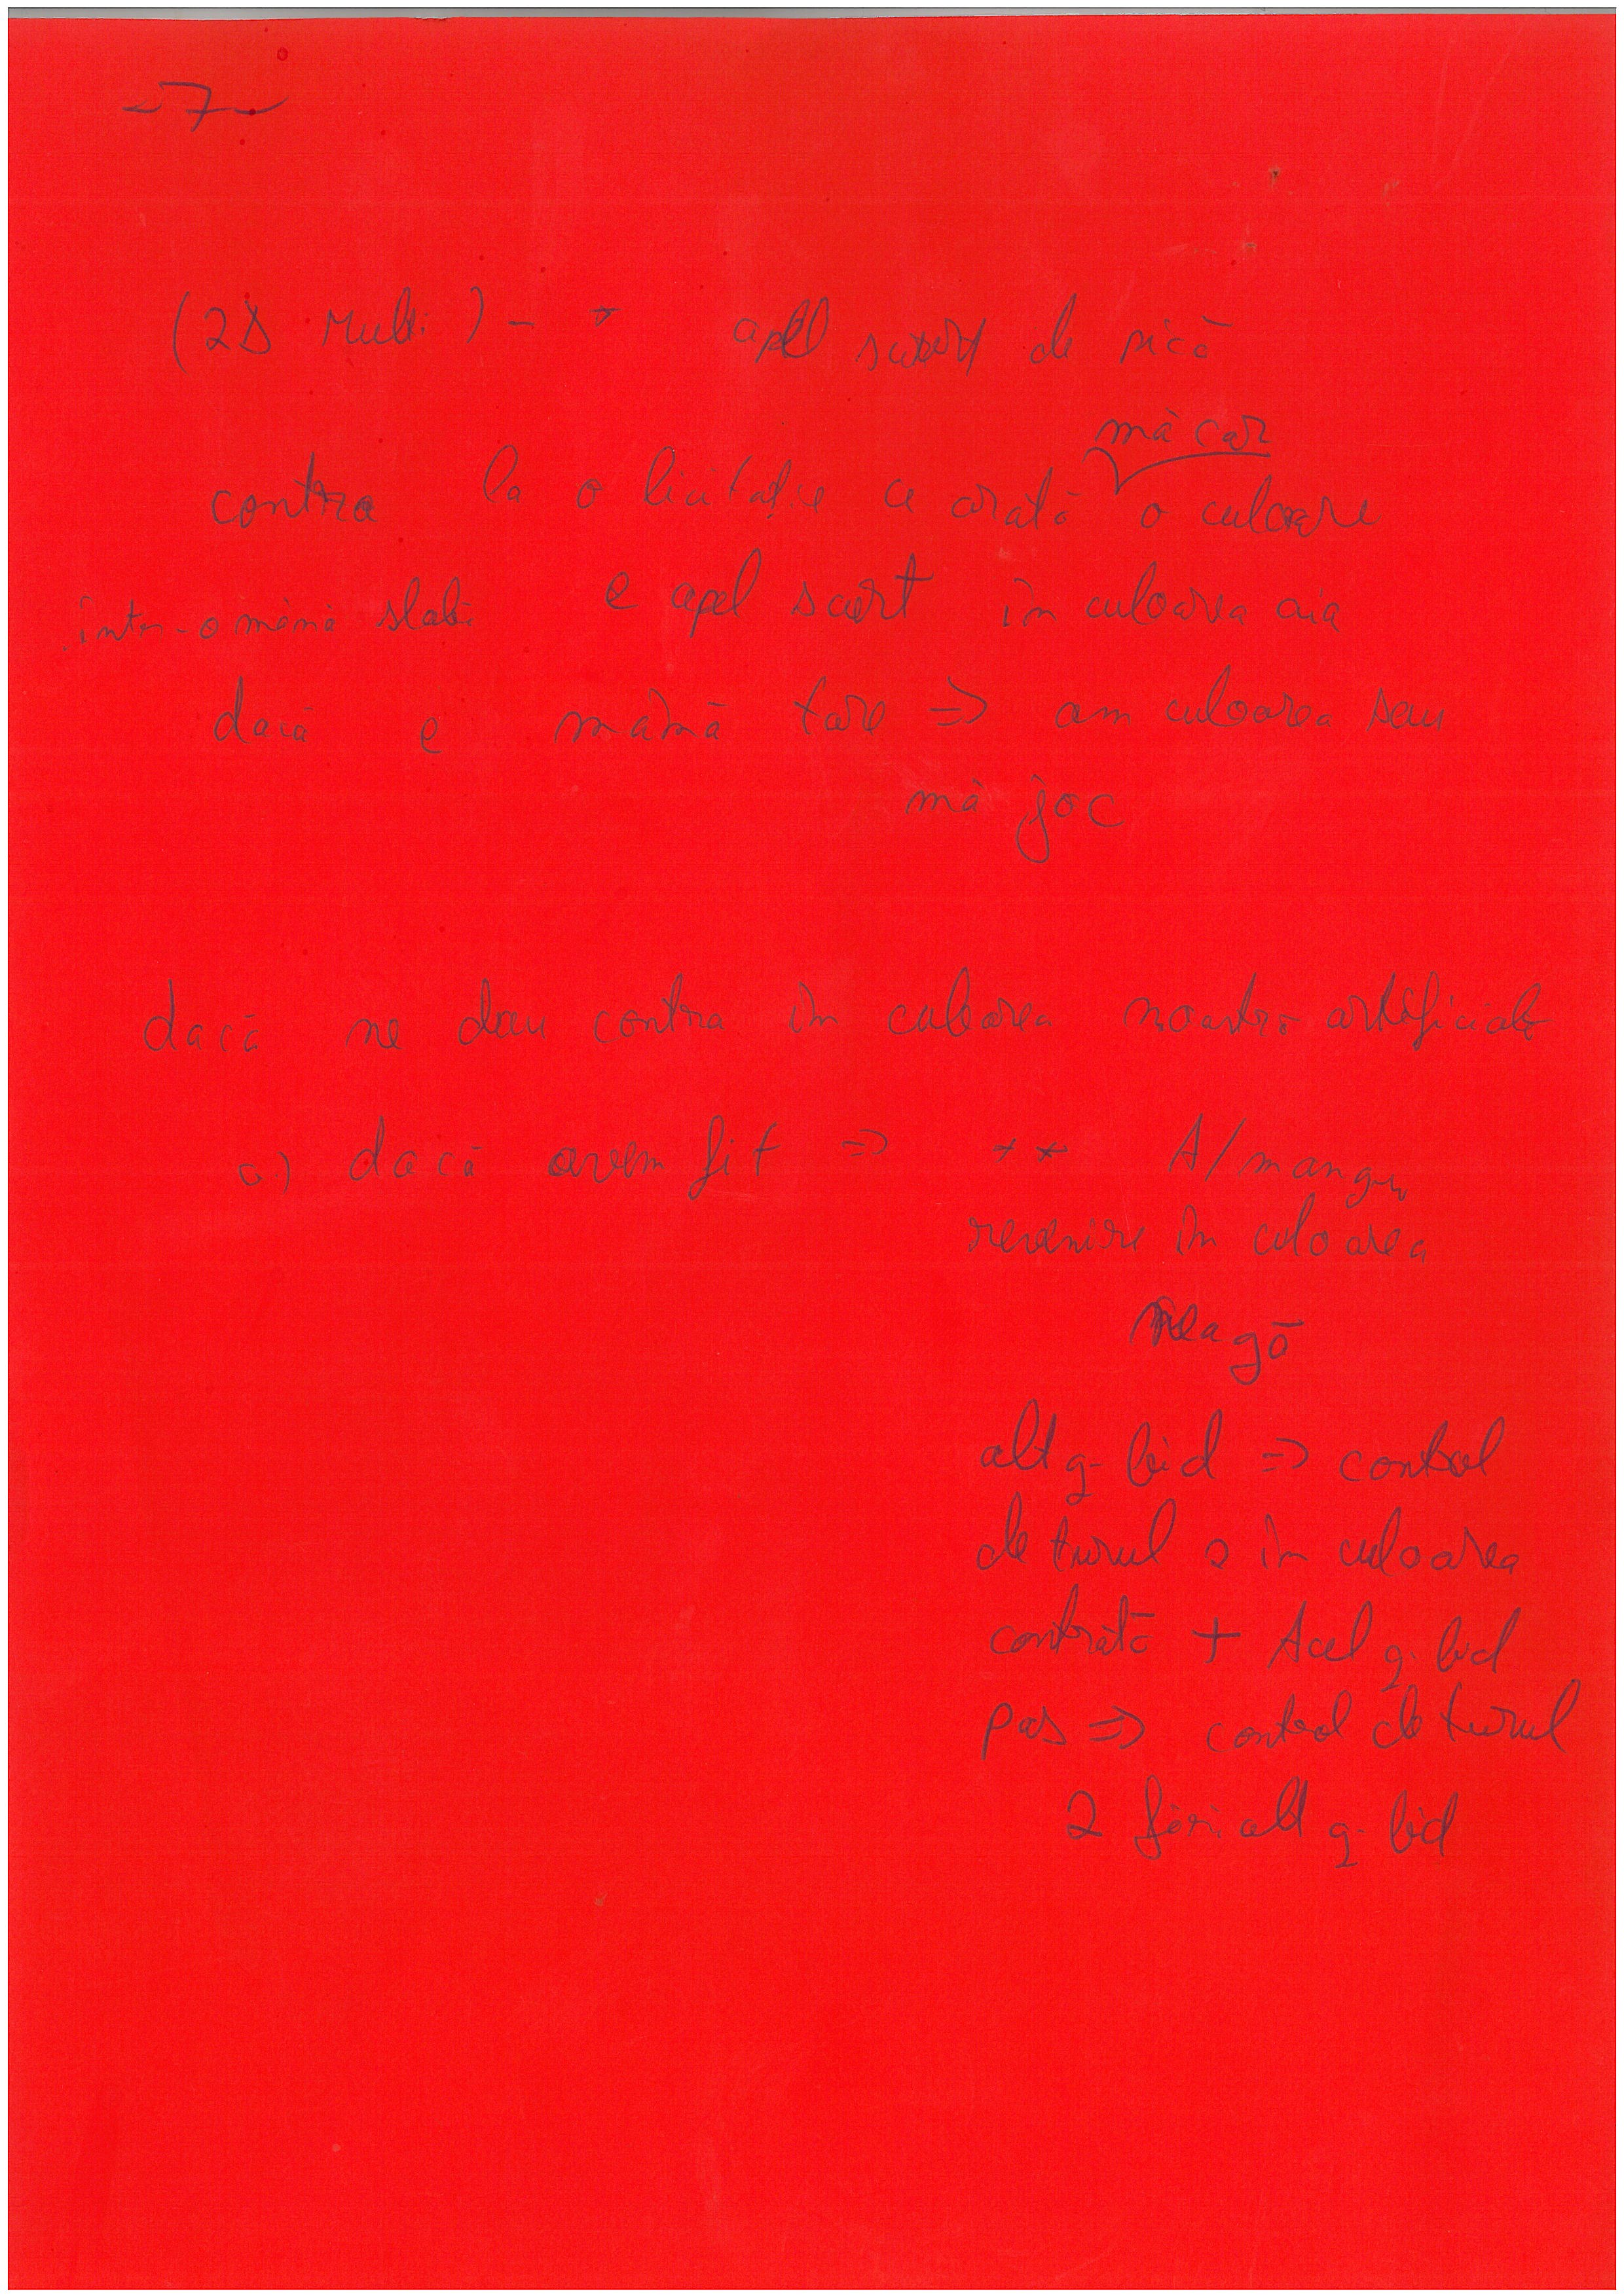 -7-
(2D Multi) - * apel scurt de pică
măcar
contra la o licitație ce arată o culoare
într-o mână slabă e apel scurt în culoarea aia
dacă e mână tare => am culoarea sau
mă joc
dacă ne dau contra în culoarea noastră artificială
a) dacă avem fit => ** A/
revenire în culoarea
neagă
alt g-bid => control
de turul 2 în culoarea
contrată + Acel g-bid
pas => control de turul
2 fără alt g-bid